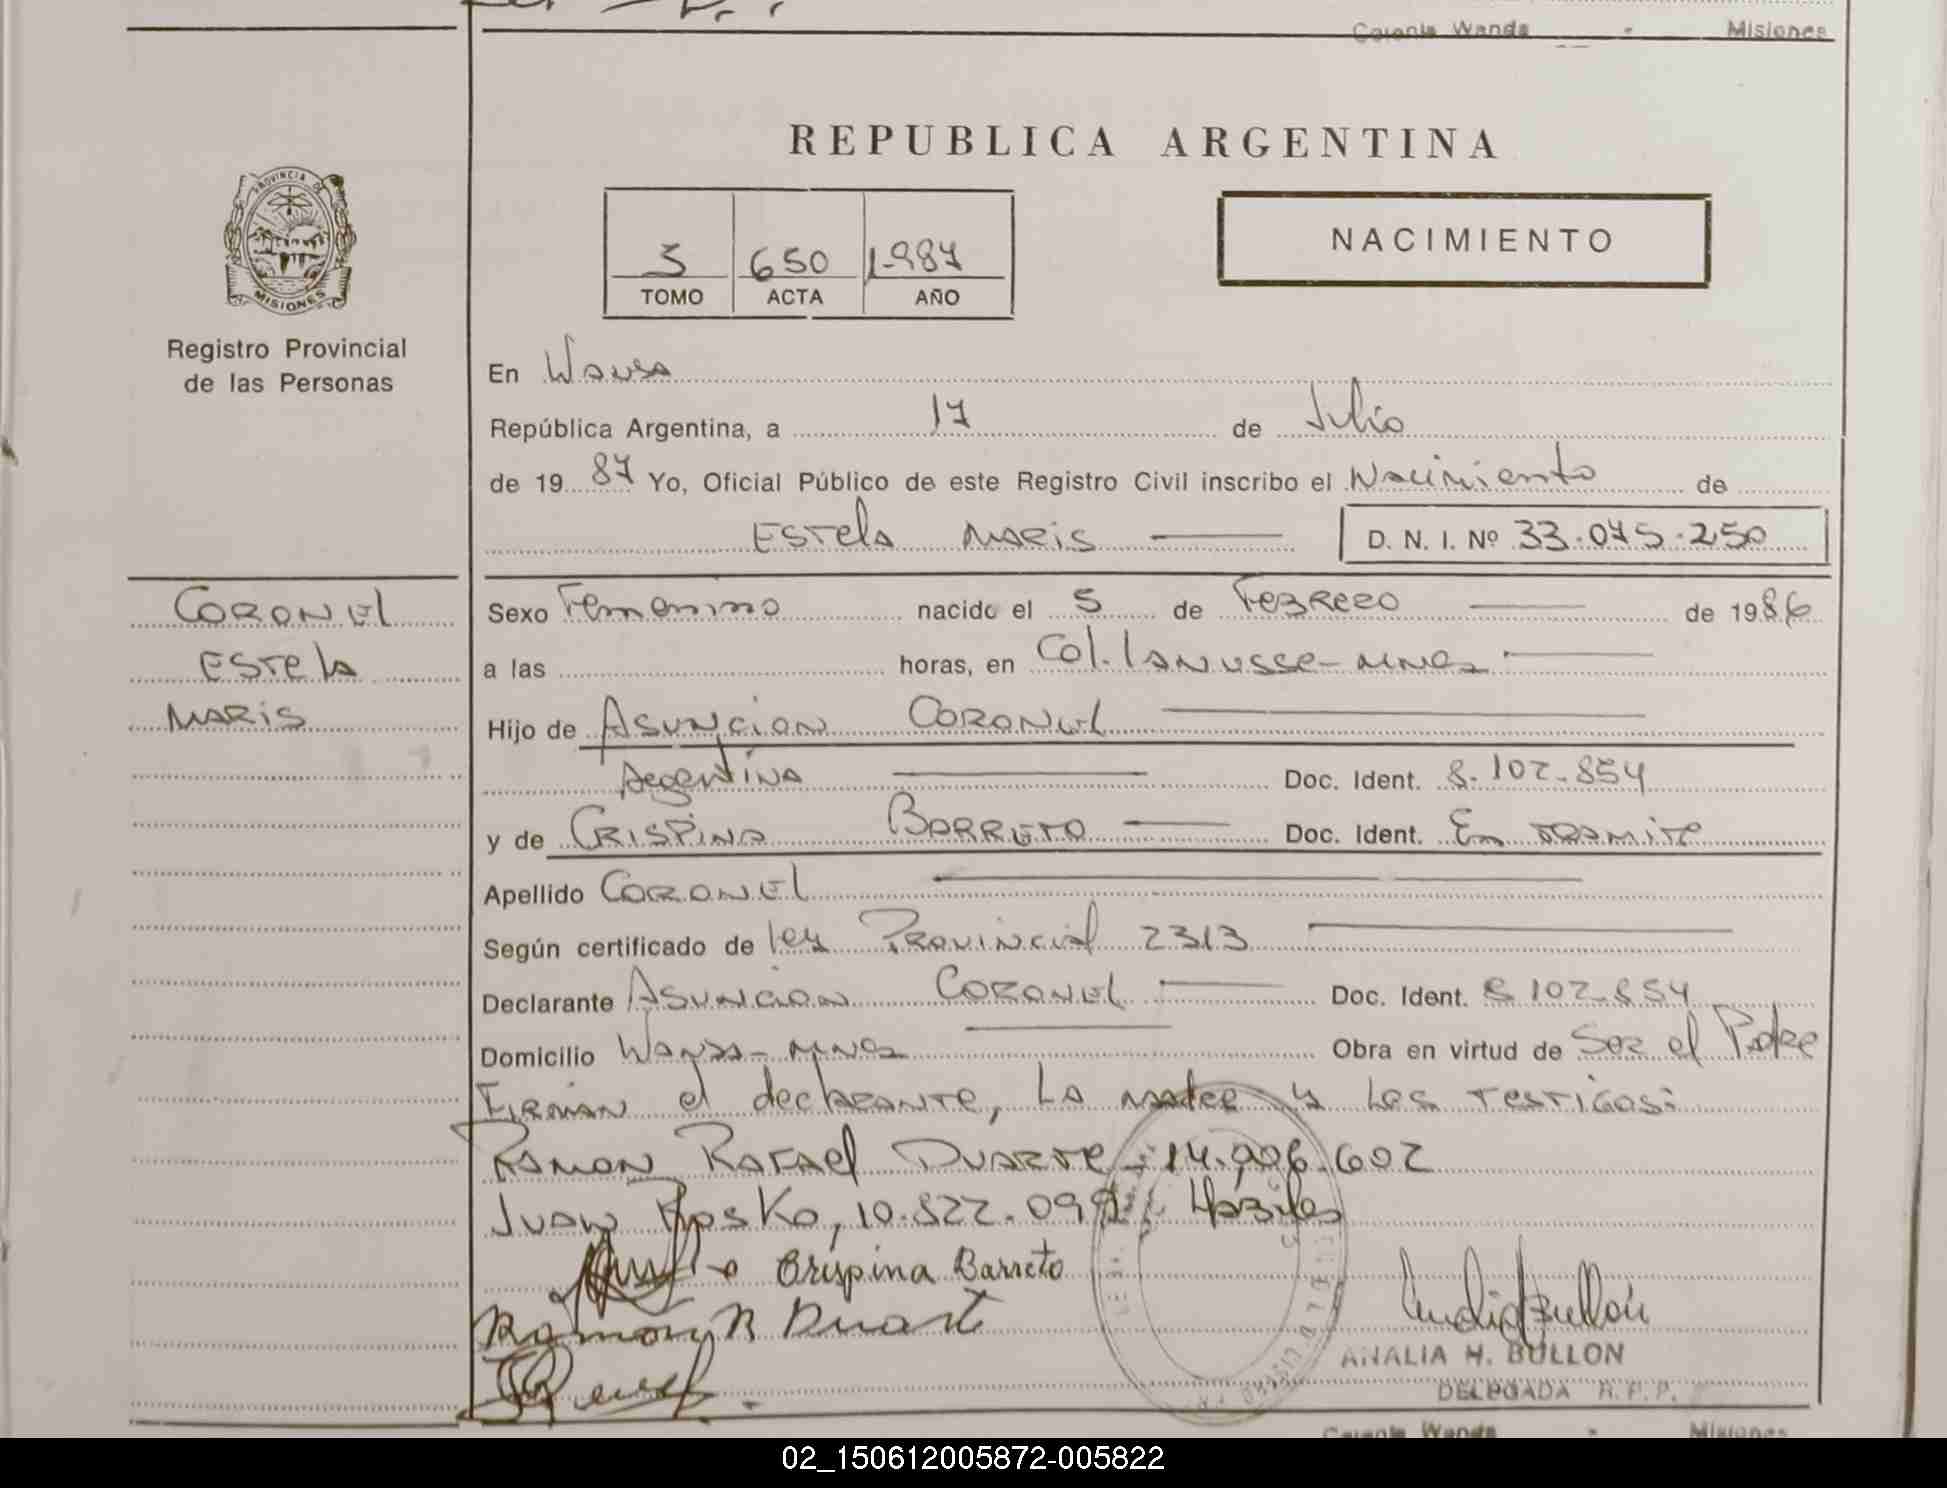 Colonia Wanda - Misiones
REPUBLICA ARGENTINA
PROVINCIA DE
MISIONES
Registro Provincial
de las Personas
3 650 1987
TOMO ACTA AÑO
NACIMIENTO
En Wanda
República Argentina, a 17 de Julio
de 19 87 Yo, Oficial Público de este Registro Civil inscribo el Nacimiento de
Estela Maris D. N. I. Nº 33.075.250
CORONEL
Estela
Maris
Sexo Femenino nacido el 5 de Febrero de 1986
a las horas, en Col. Lanusse - Mnes
Hijo de Asuncion Coronel
Argentina Doc. Ident. 8.102.854
y de Crispina Barreto Doc. Ident. En tramite
Apellido Coronel
Según certificado de Ley Provincial 2313
Declarante Asuncion Coronel Doc. Ident. 8.102.854
Domicilio Wanda - Mnes Obra en virtud de Ser el Padre
Firman el declarante, La madre y Los testigos:
Ramon Rafael Duarte - 14.906.602
Juan Rosko, 10.822.099 Habiles
Crispina Barreto
Ramon R Duarte
ANALIA H. BULLON
DELEGADA R.P.P.
Colonia Wanda - Misiones
02_150612005872-005822